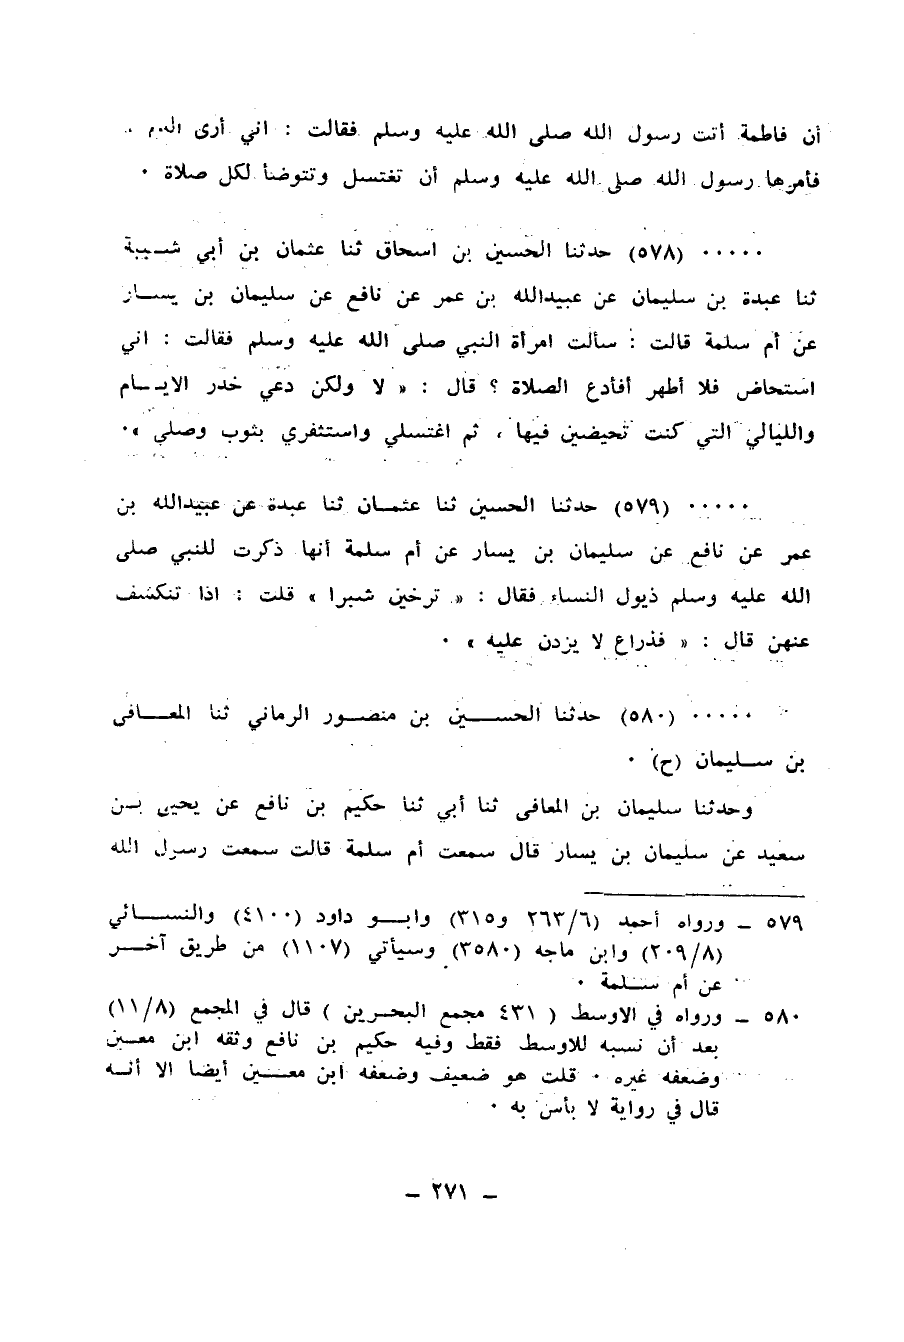 أن فاطمة أتت رسول الله صلى الله عليه وسلم فقالت : اني أرى الدم ،
فأمرها رسول الله صلى الله عليه وسلم أن تغتسل وتتوضأ لكل صلاة ٠
٠٠٠٠٠ (٥٧٨) حدثنا الحسين بن اسحاق ثنا عثمان بن أبي شـيبة
ثنا عبدة بن سليمان عن عبيدالله بن عمر عن نافع عن سليمان بن يسـار
عن أم سلمة قالت : سألت امرأة النبي صلى الله عليه وسلم فقالت : اني
استحاض فلا أطهر أفأدع الصلاة ؟ قال : « لا ولكن دعي خدر الايـام
والليالي التي كنت تحيضين فيها ، ثم اغتسلي واستثفري بثوب وصلي »٠
٠٠٠٠٠ (٥٧٩) حدثنا الحسين ثنا عثمـان ثنا عبدة عن عبيدالله بن
عمر عن نافع عن سليمان بن يسار عن أم سلمة أنها ذكرت للنبي صلى
الله عليه وسلم ذيول النساء فقال : « ترخين شبرا » قلت : اذا تنكشف
عنهن قال : « فذراع لا يزدن عليه » ٠
٠٠٠٠٠ (٥٨٠) حدثنا الحسـين بن منصـور الرماني ثنا المعـافى
بن سـليمان (ح) ٠
وحدثنا سليمان بن المعافى ثنا أبي ثنا حكيم بن نافع عن يحيى بـن
سعيد عن سليمان بن يسار قال سمعت أم سلمة قالت سمعت رسول الله
٥٧٩ ــ ورواه أحمد (٢٦٣/٦ و٣١٥) وابـو داود (٤١٠٠) والنسـائي
(٢٠٩/٨) وابن ماجه (٣٥٨٠) وسيأتي (١١٠٧) من طريق آخـر
عن أم سـلمة ٠
٥٨٠ ــ ورواه في الاوسط ( ٤٣١ مجمع البحرين ) قال في المجمع (١١/٨)
بعد أن نسبه للاوسط فقط وفيه حكيم بن نافع وثقه ابن معـين
وضعفه غيره ٠ قلت هو ضعيف وضعفه ابن معـين أيضا الا أنـه
قال في رواية لا بأس به ٠
ــ ٢٧١ ــ